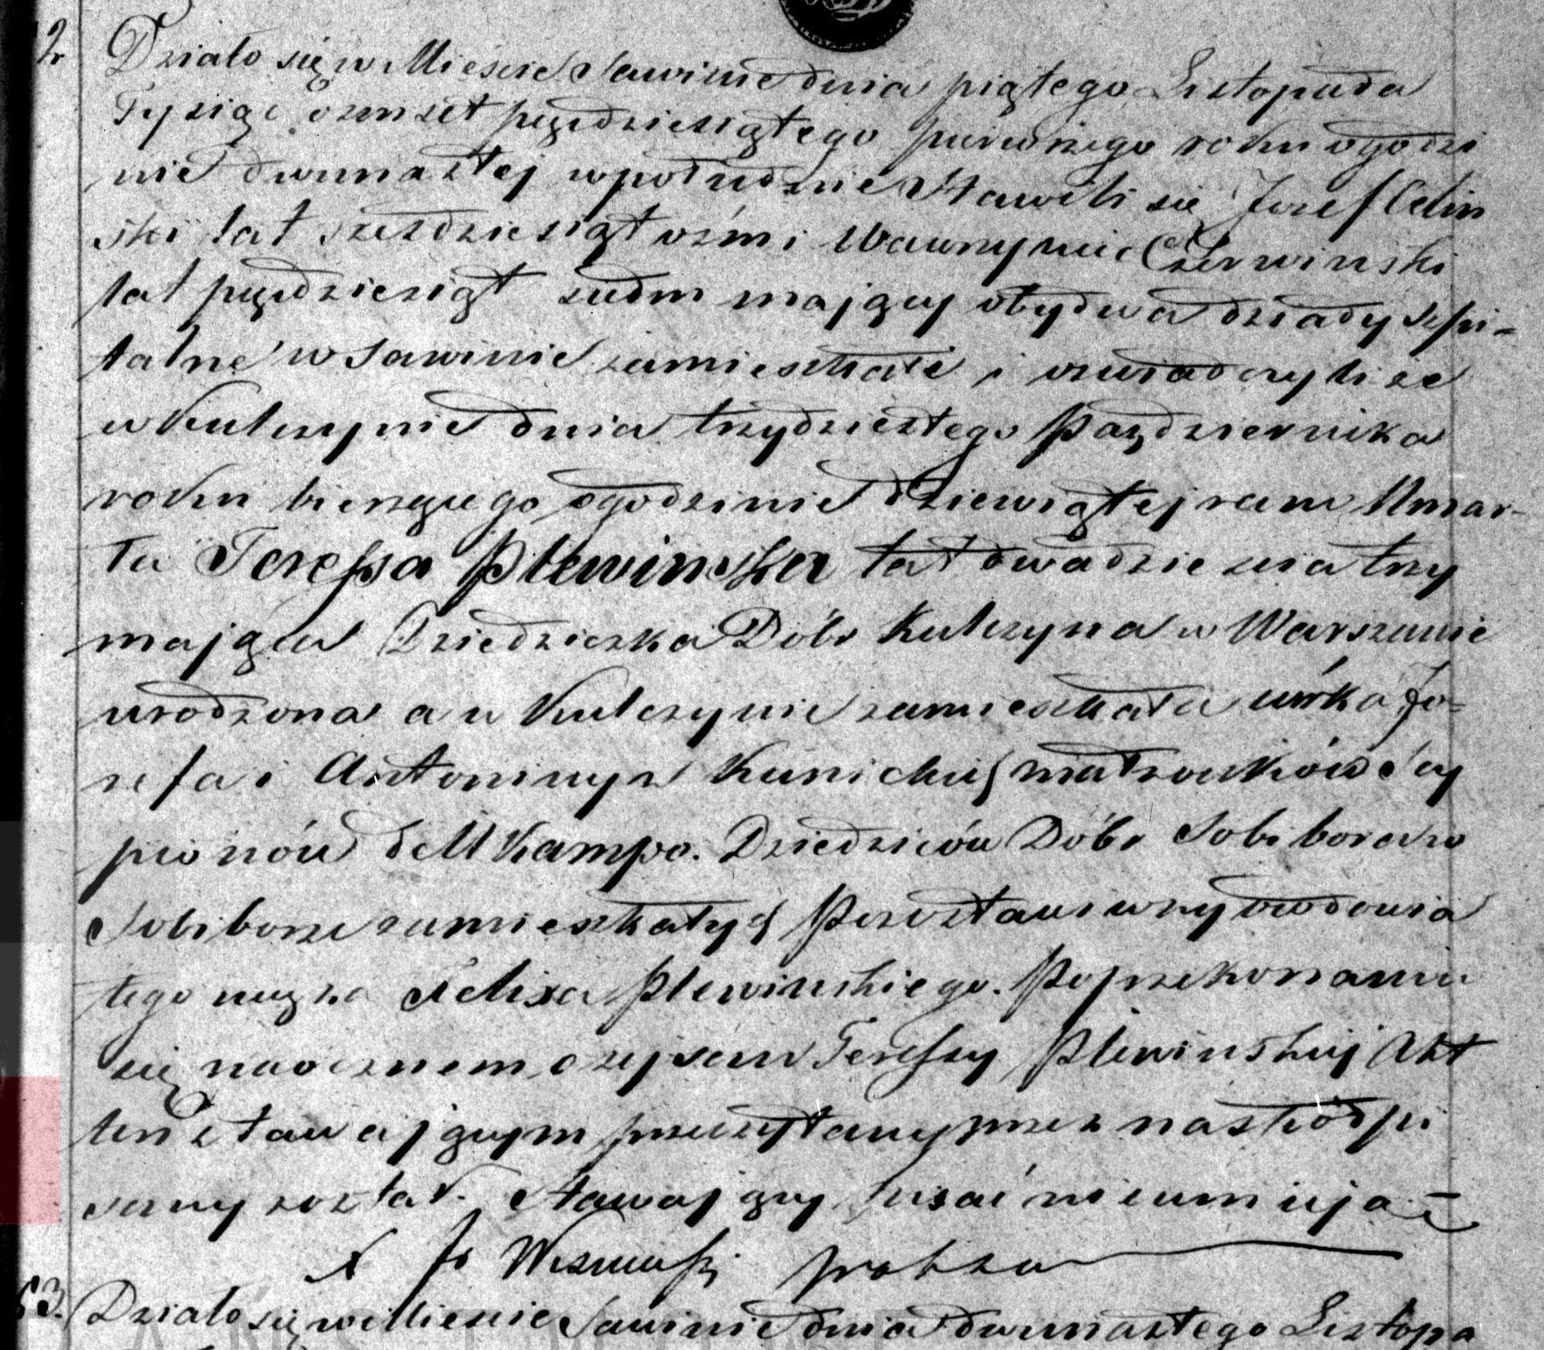 2
Działo się w Mieście Sawinie dnia piątego Listopada
Tysiąc osmset pięćdziesiątego pierwszego roku o godzi
nie dwunastej w południe Stawili się Jozef Celin
ski lat sześdziesiąt ośm i Wawrzyniec Czerwinski
lat pięćdziesiąt siedm mający obydwa dziady szpi-
talne w Sawinie zamieszkałe i oświadczyli że
w Kulczynie dnia trzydziestego Października
roku bieżącego o godzinie dziewiątej rano Umar-
ła Teressa Plewinska lat dwadzieścia trzy
mająca Dziedziczka Dóbr Kulczyna w Warszawie
urodzona a w Kulczynie zamieszkała córka Jo-
zefa i Antoniny Kunickich małżonków Scy
pionów dell Kampo. Dziedziców Dóbr Sobibora w
Sobiborze zamieszkałych Pozostawiwszy owdowia
łego męża Felixa Plewinskiego. Po przekonaniu
się naocznem o zejściu Teressy Plewinskiej Akt
ten stawającym przeczytany przez nas podpi
sany został. Stawający pisać nieumieją
X J. Probszcz
63. Działo się w Mieście Sawinie dnia dwunastego Listopa